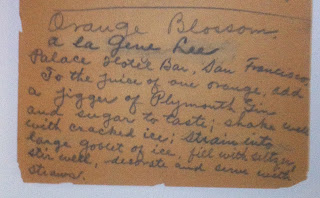 Orange Blossom.
a la Gene Lee
Palace Hotel Bar, San Francisco,
To the juice of one orange, add
a jigger of Plymouth Gin
and sugar to taste; shake well
with cracked ice; strain into
large goblet of ice, fill with seltzer,
stir well, decorate and serve with
straws.